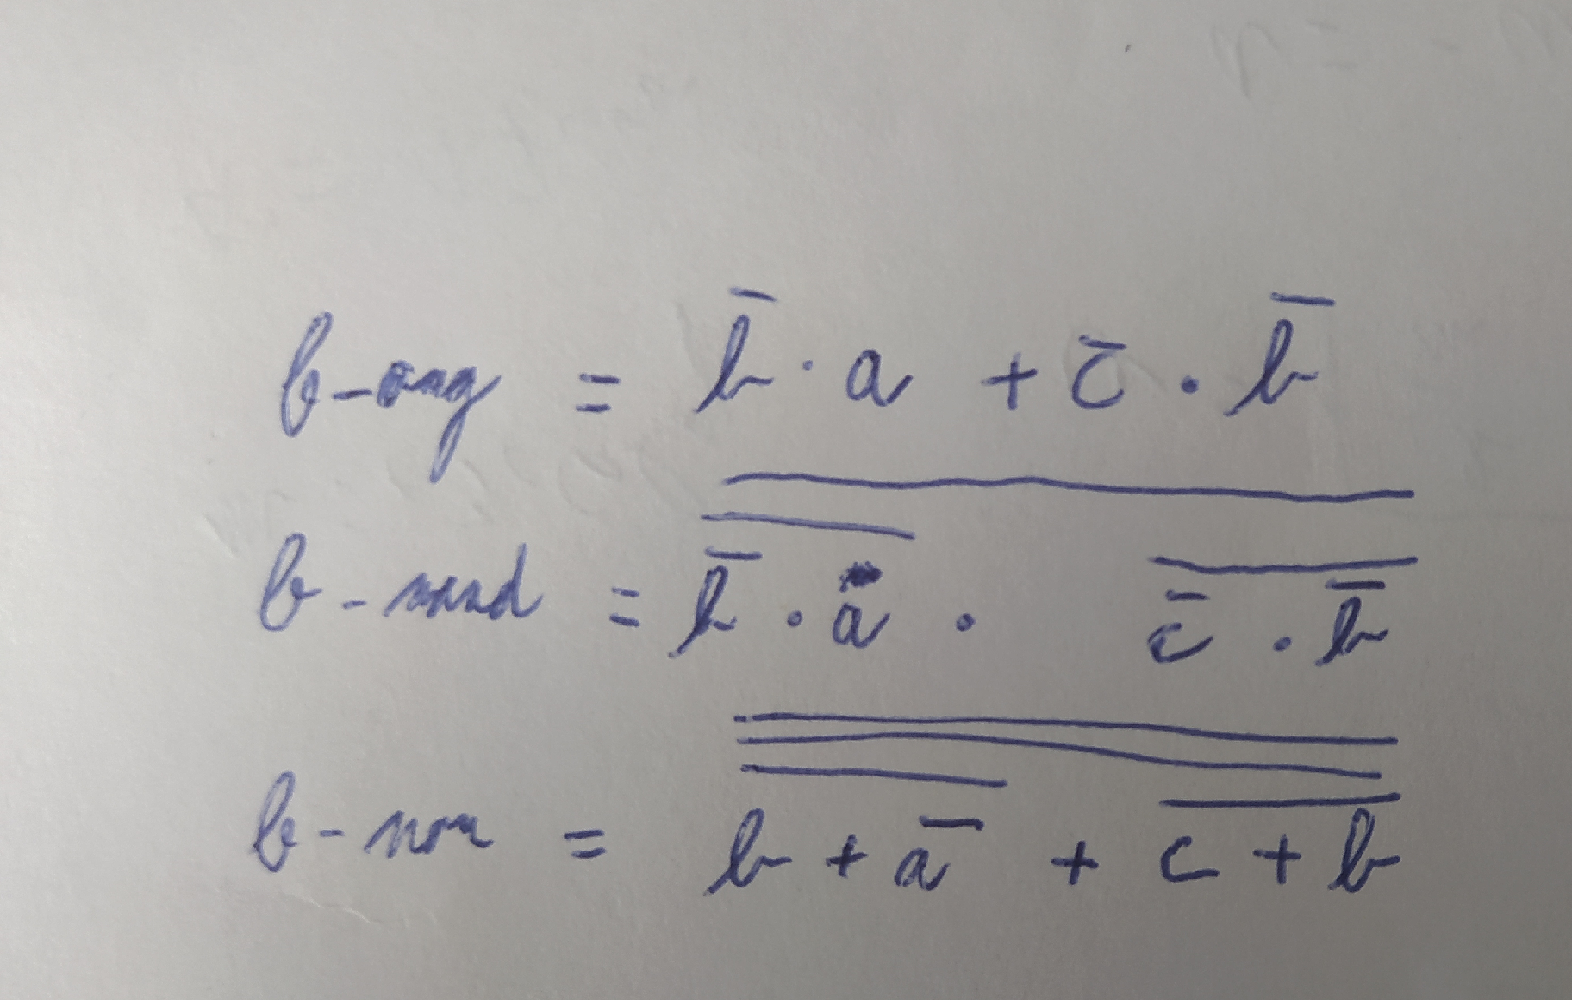 b-orig = b̅ · a + c̅ · b̅
b-nand = \overline{\overline{b̅ · a} · \overline{c̅ · b̅}}
b-nor = \overline{\overline{\overline{b + a̅} + \overline{c + b}}}